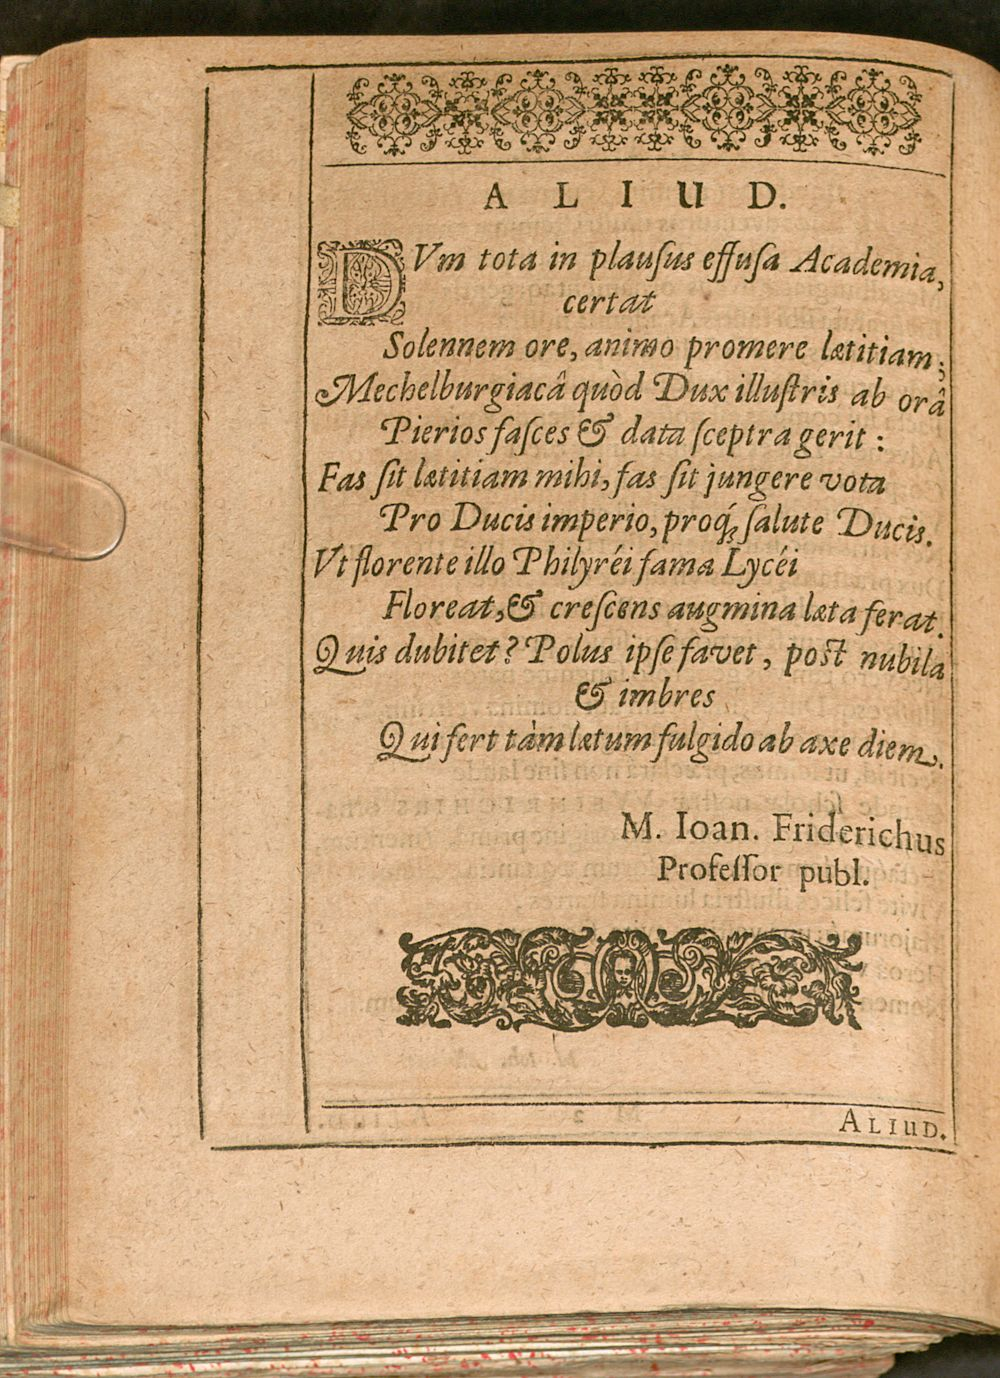 ALIUD.
DVm tota in plauſus effuſa Academia,
certat
Solennem ore, animo promere lætitiam;
Mechelburgiacâ quòd Dux illuſtris ab orâ
Pierios faſces & data ſceptra gerit:
Fas ſit lætitiam mihi, fas ſit jungere vota
Pro Ducis imperio, proq́; ſalute Ducis.
Vt florente illo Philyréi fama Lycéi
Floreat, & creſcens augmina læta ferat.
Quis dubitet? Polus ipſe favet, poſt nubila
& imbres
Qui fert tàm lætum fulgido ab axe diem.
M. Ioan. Friderichus
Profeſſor publ.
ALIUD.